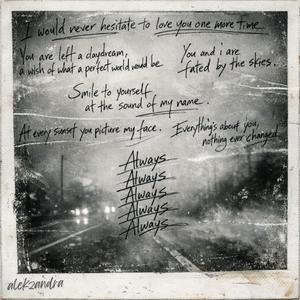 I would never hesitate to love you one more time
You are left a daydream,
a wish of what a perfect world would be
You and i are
fated by the skies.
Smile to yourself
at the sound of my name.
At every sunset you picture my face.
Everything's about you,
nothing ever changed
Always
Always
Always
Always
Always
alekzandra